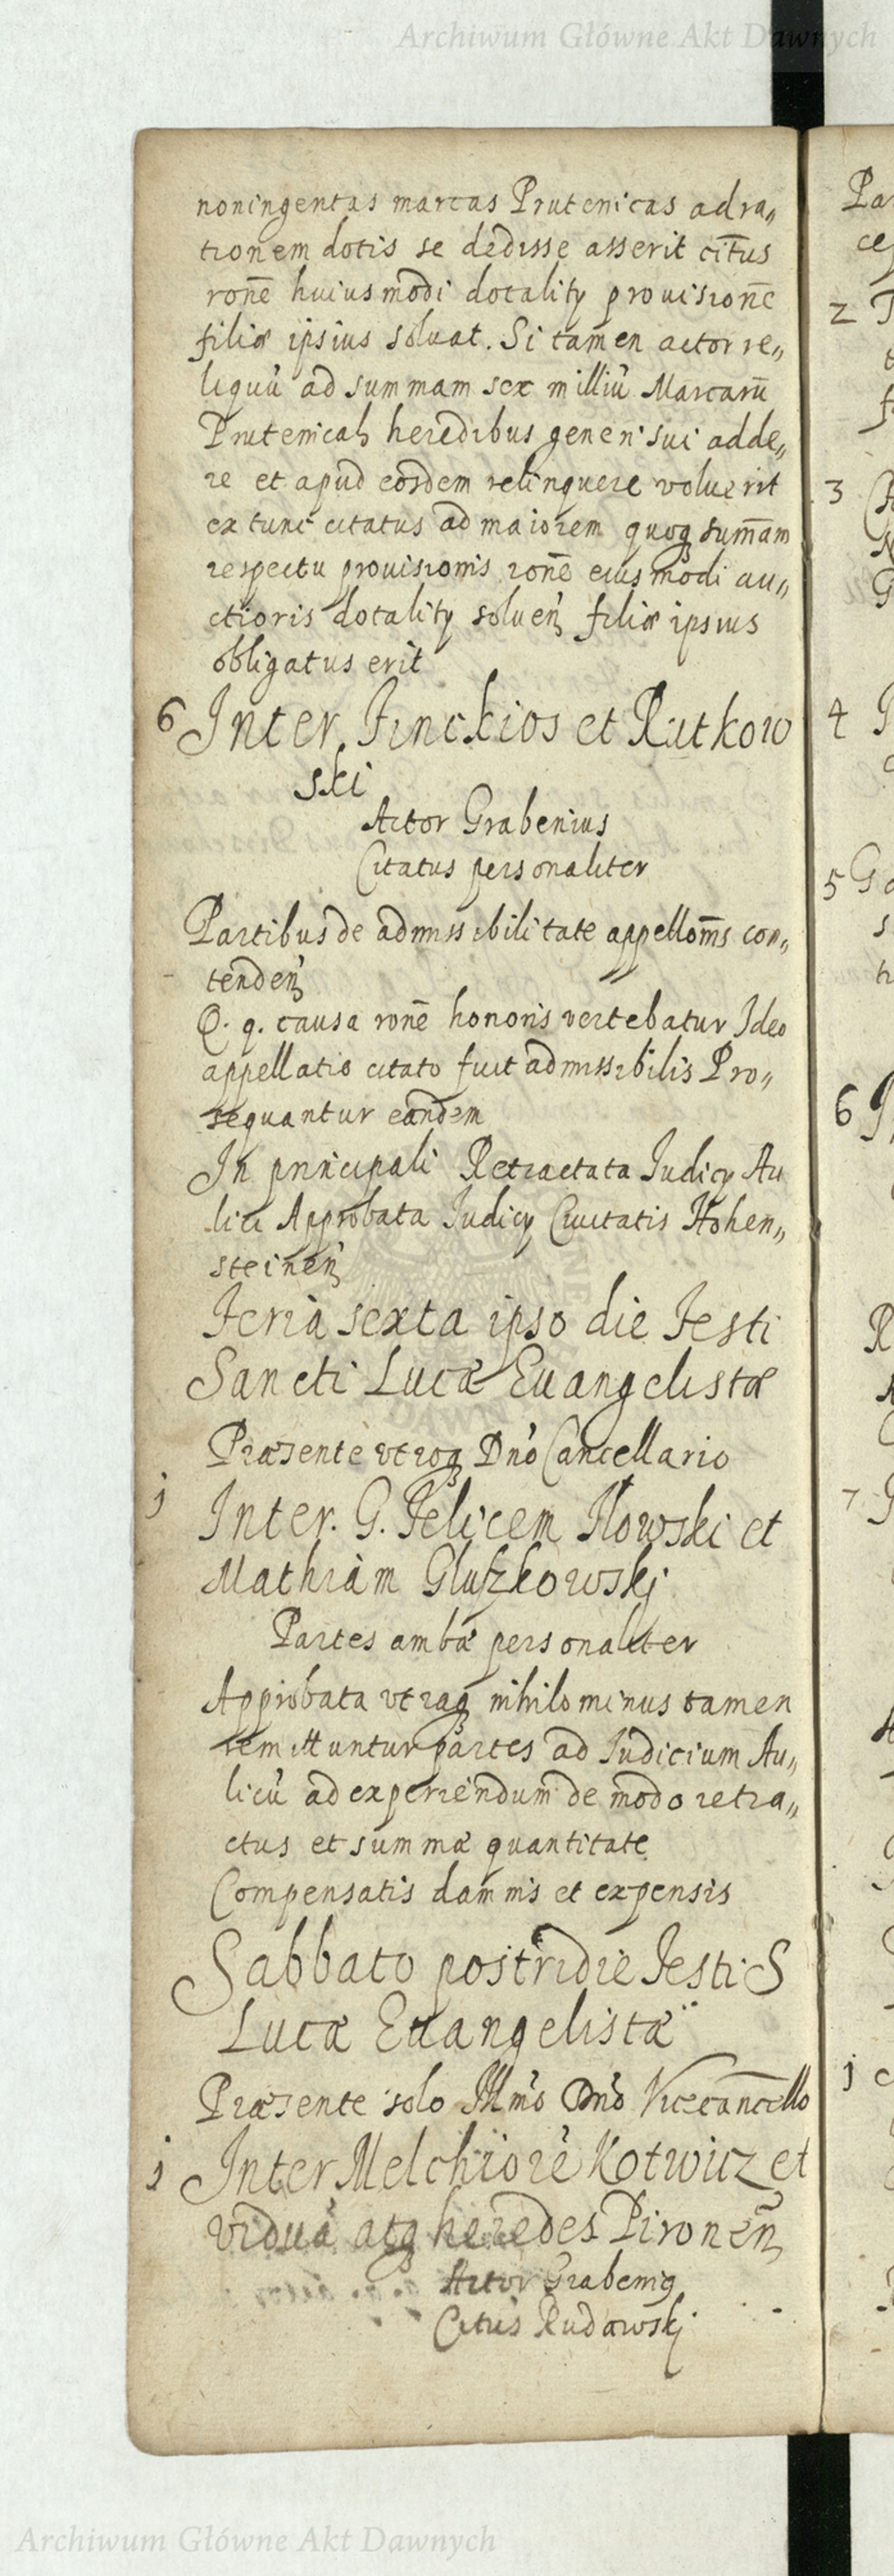 Archiwum Główne Akt Dawnych
noningentas marcas Prutenicas ad ra„
tionem dotis se dedisse asserit cit̄us
ron̄e huiusmodi dotalitÿ prouision̄e
filiæ ipsius soluat. Si tamen actor re„
liquū ad summam sex milliū Marcarū
Prutenicaꝝ heredibus generi sui adde„
re et apud eosdem relinquere voluerit
ex tunc citatus ad maiorem quoqꝫ sum̄am
respectu prouisionis ron̄e eiusmodi au„
ctioris dotalitÿ soluen̄ filiæ ipsius
obligatus erit
6 Inter Finckios et Rutkow
ski
Actor Grabenius
Citatus personaliter
Partibus de admissibilitate appellom̄s con„
tenden̄
Q. q. causa ron̄e honoris vertebatur Ideo
appellatio citato fuit admissibilis Pro„
sequantur eandem
In principali Retractata Iudicÿ Au
lici Approbata Iudicÿ Ciuitatis Hohen„
steinen̄
Feria sexta ipso die Festi
Sancti Lucæ Euangelistæ
Præsente vtroqꝫ Dn̄o Cancellario
j
Inter. G. Felicem Ilowski et
Mathiam Glutzkowskj
Partes ambæ personaliter
Approbata vtraqꝫ nihilominus tamen
remittuntur partes ad Iudicium Au„
licū ad experiendum de modo retra„
ctus et summæ quantitate
Compensatis damnis et expensis
Sabbato postridie Festi S
Lucæ Euangelistæ
Præsente solo Illm̄o Dn̄o Vicecan̄cello
j Inter Melchiorē Kotwicz et
viduā atqꝫ heredes Pironen̄
Actor Grabeniꝯ
Cit̄us Rudowskj
Archiwum Główne Akt Dawnych
2
3
4
5
6
7
j